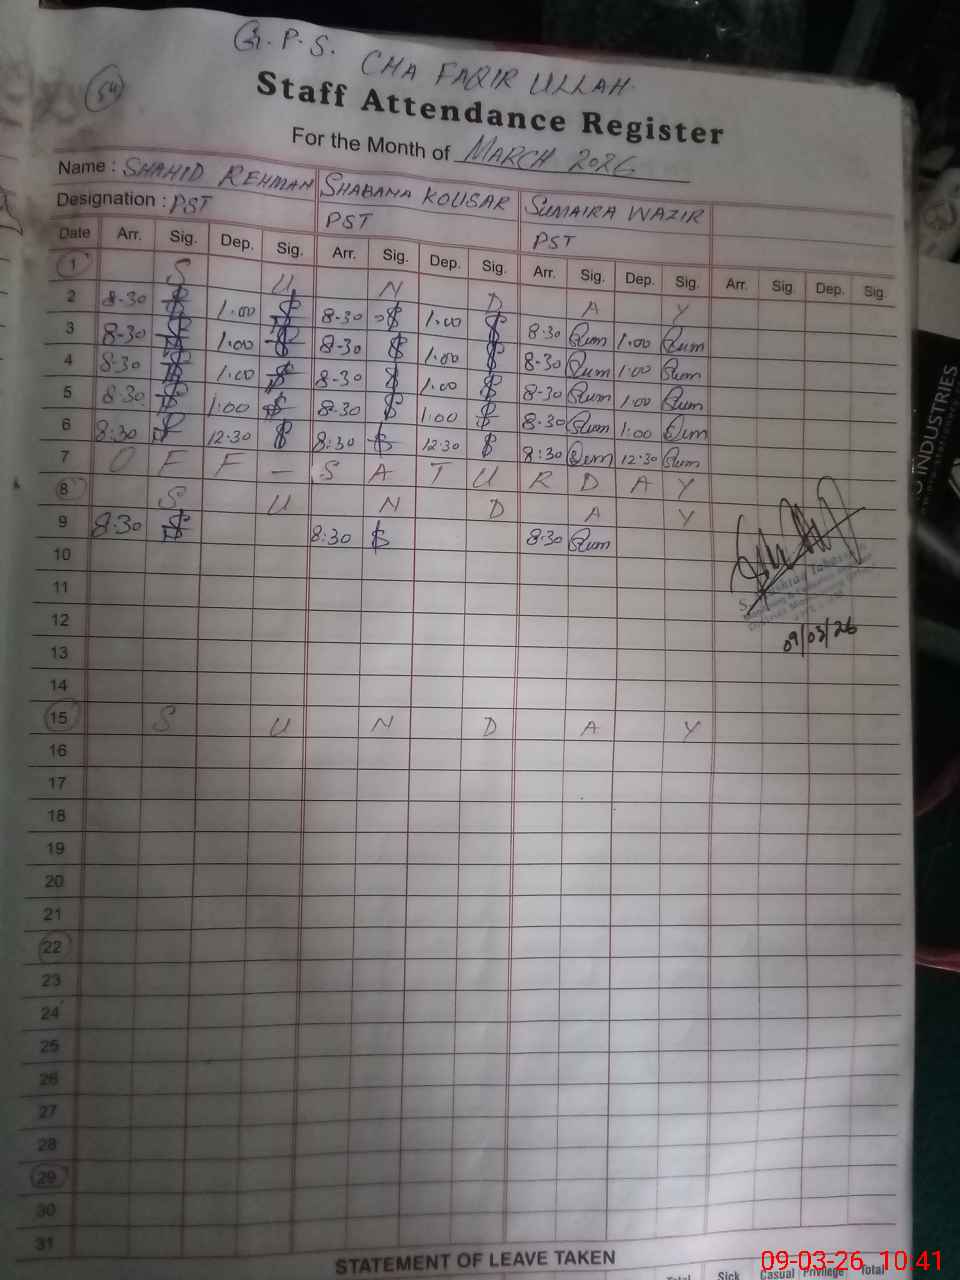 G.P.S. CHA FAQIR ULLAH
54
Staff Attendance Register
For the Month of MARCH 2026
Name : SHAHID REHMAN SHABANA KOUSAR SUMAIRA WAZIR
Designation : PST PST PST
Date Arr. Sig. Dep. Sig. Arr. Sig. Dep. Sig. Arr. Sig. Dep. Sig. Arr. Sig Dep. Sig.
1 S U N D A Y
2 8-30 1.00 8-30 1.00 8-30 Sum 1.00 Sum
3 8-30 1.00 8-30 1.00 8-30 Sum 1.00 Sum
4 8-30 1.00 8-30 1.00 8-30 Sum 1.00 Sum
5 8-30 1:00 8-30 1:00 8-30 Sum 1:00 Sum
6 8:30 12-30 8:30 12-30 8:30 Sum 12-30 Sum
7 O F F - S A T U R D A Y
8 S U N D A Y
9 8:30 8:30 8-30 Sum
10
11
12
13
09/03/26
14
15 S U N D A Y
16
17
18
19
20
21
22
23
24
25
26
27
28
29
30
31
STATEMENT OF LEAVE TAKEN
Total Sick Casual Privilege Total
INDUSTRIES
09-03-26 10:41